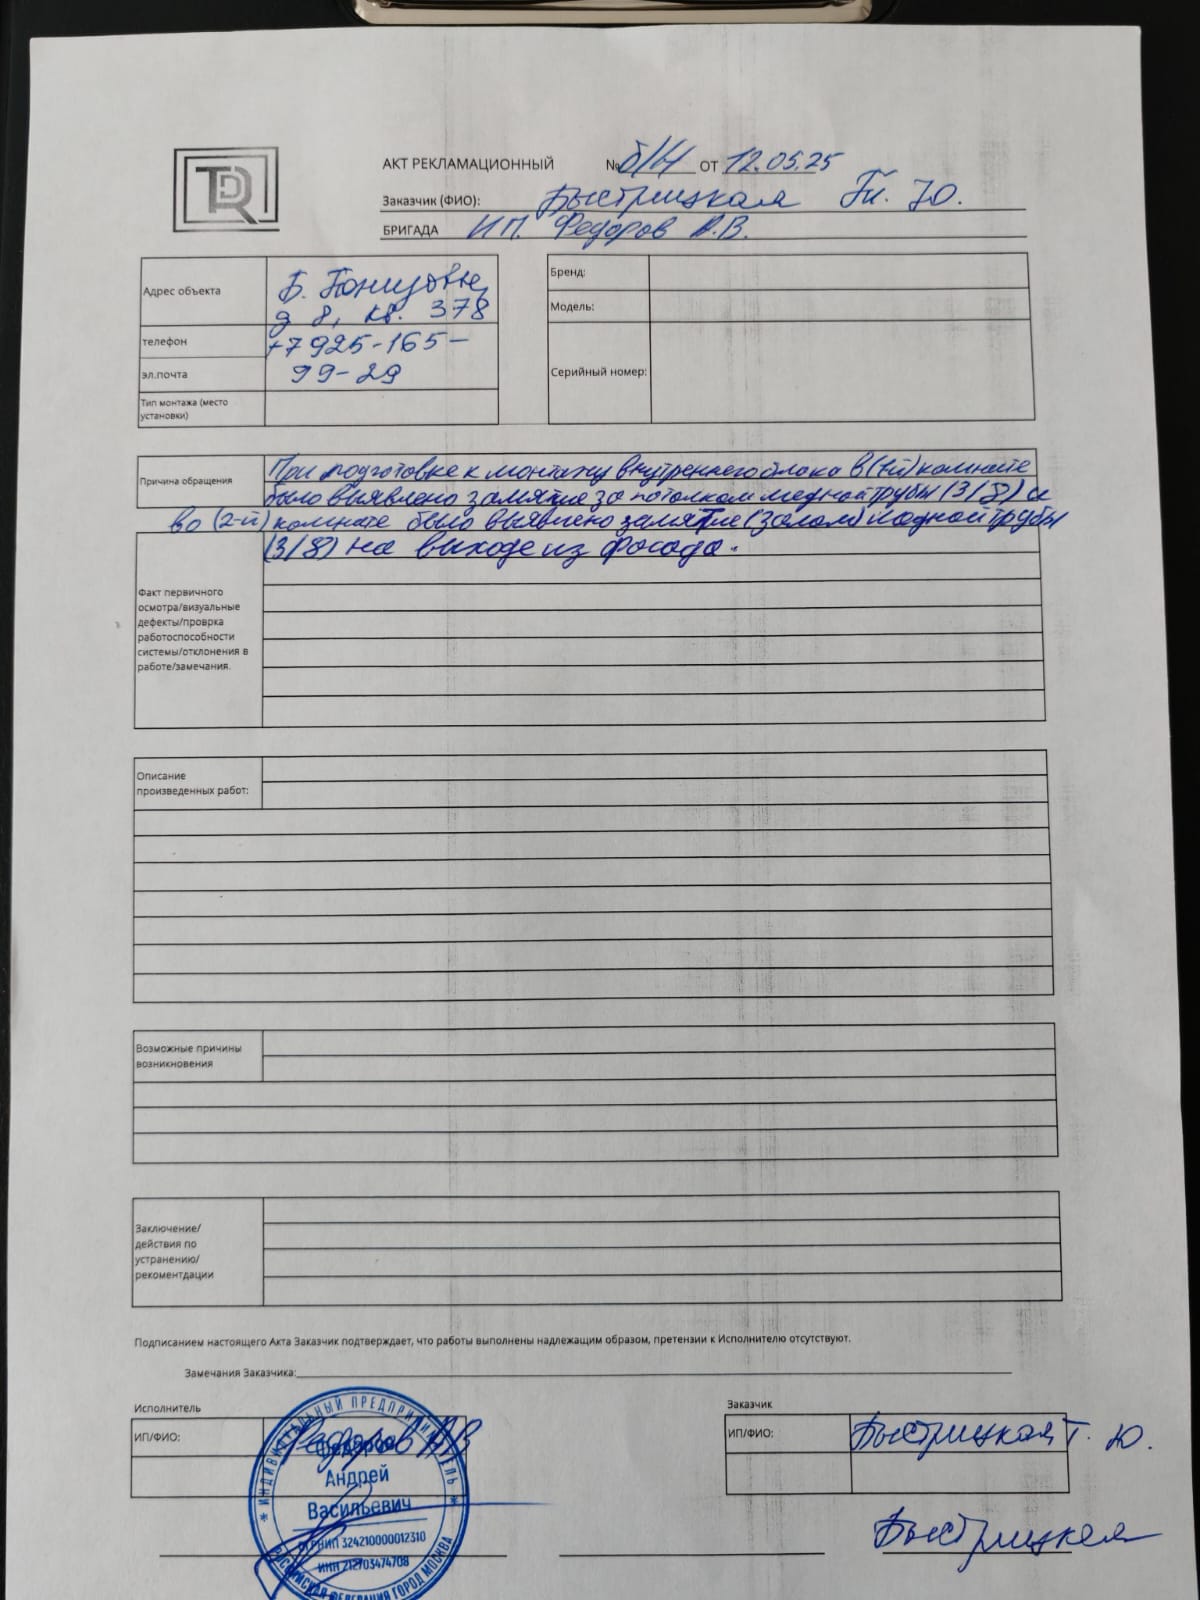 TDR
АКТ РЕКЛАМАЦИОННЫЙ № б/н от 12.05.25
Заказчик (ФИО): Быстрицкая Ю.
БРИГАДА ИП. Федоров А.В.
Адрес объекта Б.
д 8, кв. 378
телефон +7 925-165-
эл.почта 99-29
Тип монтажа (место
установки)
Бренд:
Модель:
Серийный номер:
Причина обращения При подготовке к монтажу внутреннего блока в (1-й) комнате
было выявлено замятие за потолком медной трубы (3/8) а
во (2-й) комнате было выявлено замятие (залом) медной трубы
(3/8) на выходе из фасада.
Факт первичного
осмотра/визуальные
дефекты/проврка
работоспособности
системы/отклонения в
работе/замечания.
Описание
произведенных работ:
Возможные причины
возникновения
Заключение/
действия по
устранению/
рекоментдации
Подписанием настоящего Акта Заказчик подтверждает, что работы выполнены надлежащим образом, претензии к Исполнителю отсутствуют.
Замечания Заказчика:
Исполнитель
ИП/ФИО: Федоров АВ
ИНДИВИДУАЛЬНЫЙ ПРЕДПРИНИМАТЕЛЬ
Федоров
Андрей
Васильевич
ОГРНИП 324210000012310
ИНН 212703474708
РОССИЙСКАЯ ФЕДЕРАЦИЯ ГОРОД МОСКВА
Заказчик
ИП/ФИО: Быстрицкая Г. Ю.
Быстрицкая